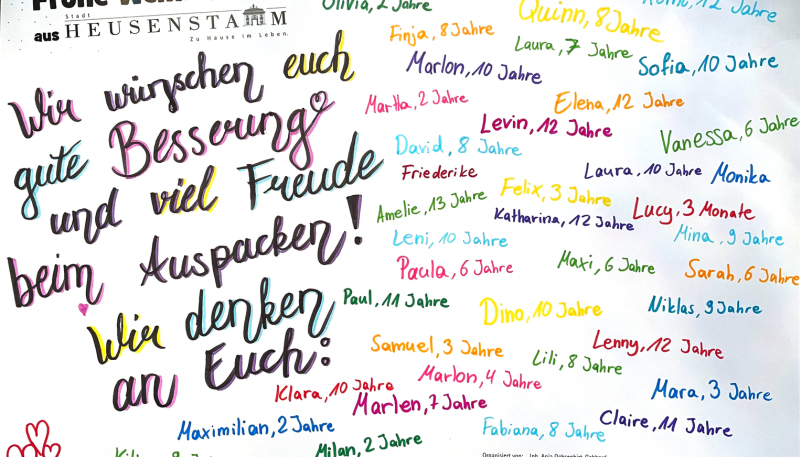 Frohe
Stadt
aus HEUSENSTAMM
Zu Hause im Leben.
Wir wünschen euch
gute Besserung
und viel Freude
beim Auspacken!
Wir denken
an Euch:
Olivia, 2 Jahre
Quinn, 8 Jahre
12 Jahre
Finja, 8 Jahre
Laura, 7 Jahre
Marlon, 10 Jahre
Sofia, 10 Jahre
Martha, 2 Jahre
Elena, 12 Jahre
Levin, 12 Jahre
Vanessa, 6 Jahre
David, 8 Jahre
Friederike
Laura, 10 Jahre
Monika
Felix, 3 Jahre
Amelie, 13 Jahre
Katharina, 12 Jahre
Lucy, 3 Monate
Leni, 10 Jahre
Mina, 9 Jahre
Paula, 6 Jahre
Maxi, 6 Jahre
Sarah, 6 Jahre
Paul, 11 Jahre
Dino, 10 Jahre
Niklas, 9 Jahre
Samuel, 3 Jahre
Lenny, 12 Jahre
Lili, 8 Jahre
Marlon, 4 Jahre
Klara, 10 Jahre
Mara, 3 Jahre
Marlen, 7 Jahre
Maximilian, 2 Jahre
Fabiana, 8 Jahre
Claire, 11 Jahre
Milan, 2 Jahre
Organisiert von: